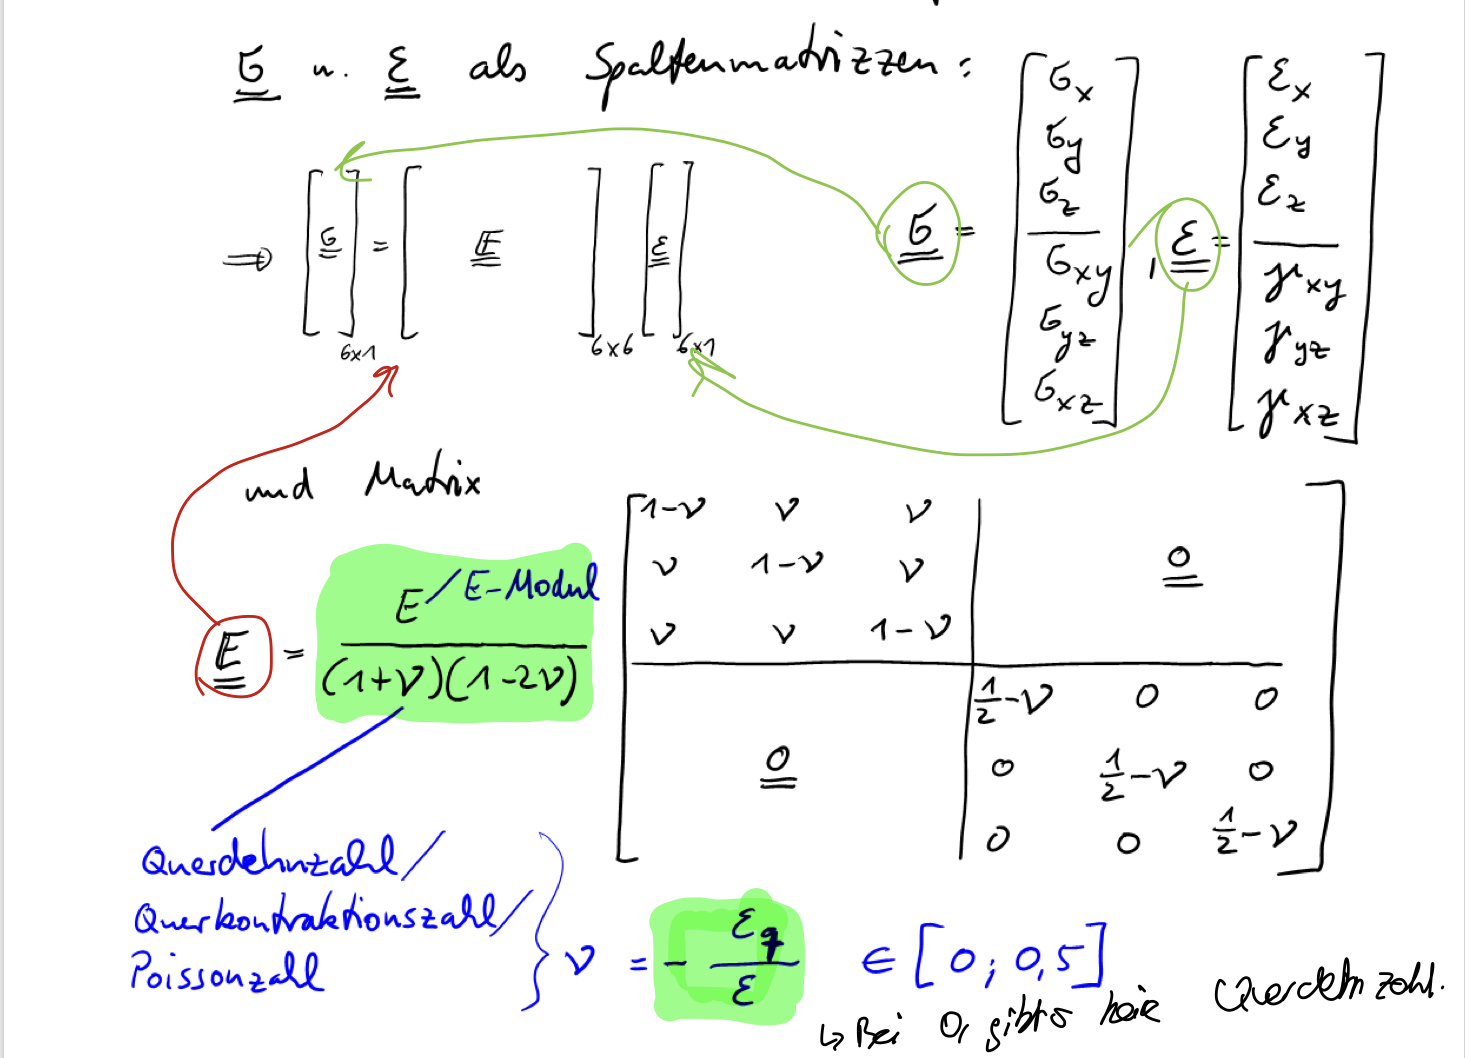 σ u. ε als Spaltenmatrizzen:
σ = [σx σy σz σxy σyz σxz], ε = [εx εy εz γxy γyz γxz]
⇒ [σ]6x1 = [E]6x6 [ε]6x1
und Matrix
E = E / (1+ν)(1-2ν)
E-Modul
1-ν ν ν
ν 1-ν ν 0
ν ν 1-ν
1/2-ν 0 0
0 0 1/2-ν 0
0 0 1/2-ν
Querdehnzahl/
Querkontraktionszahl/
Poissonzahl
ν = - εq/ε ∈ [0; 0,5]
↳ Bei 0, gibts keie Querdehnzahl.